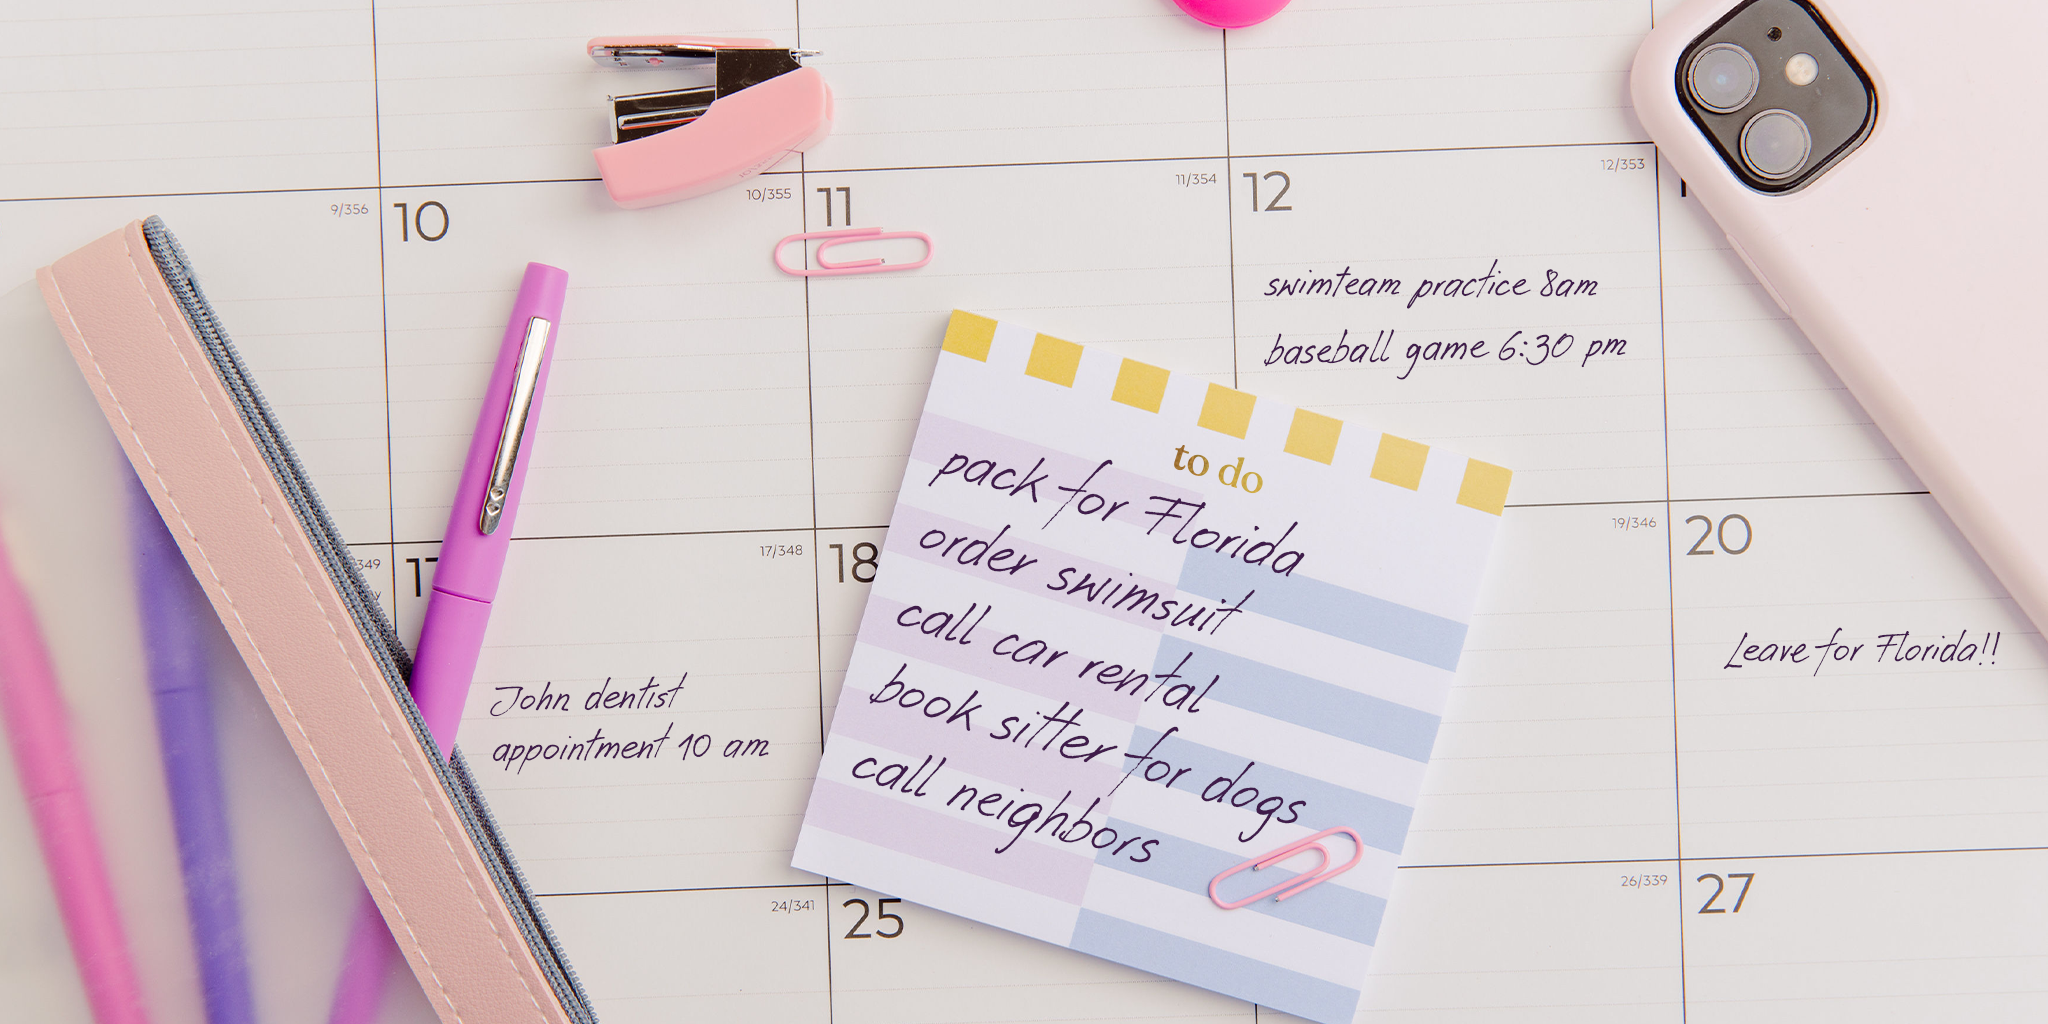 9/356
10
10/355
11
11/354
12
12/353
swimteam practice 8am
baseball game 6:30 pm
to do
pack for Florida
order swimsuit
call car rental
book sitter for dogs
call neighbors
349
17
17/348
18
19/346
20
John dentist
appointment 10 am
Leave for Florida!!
24/341
25
26/339
27